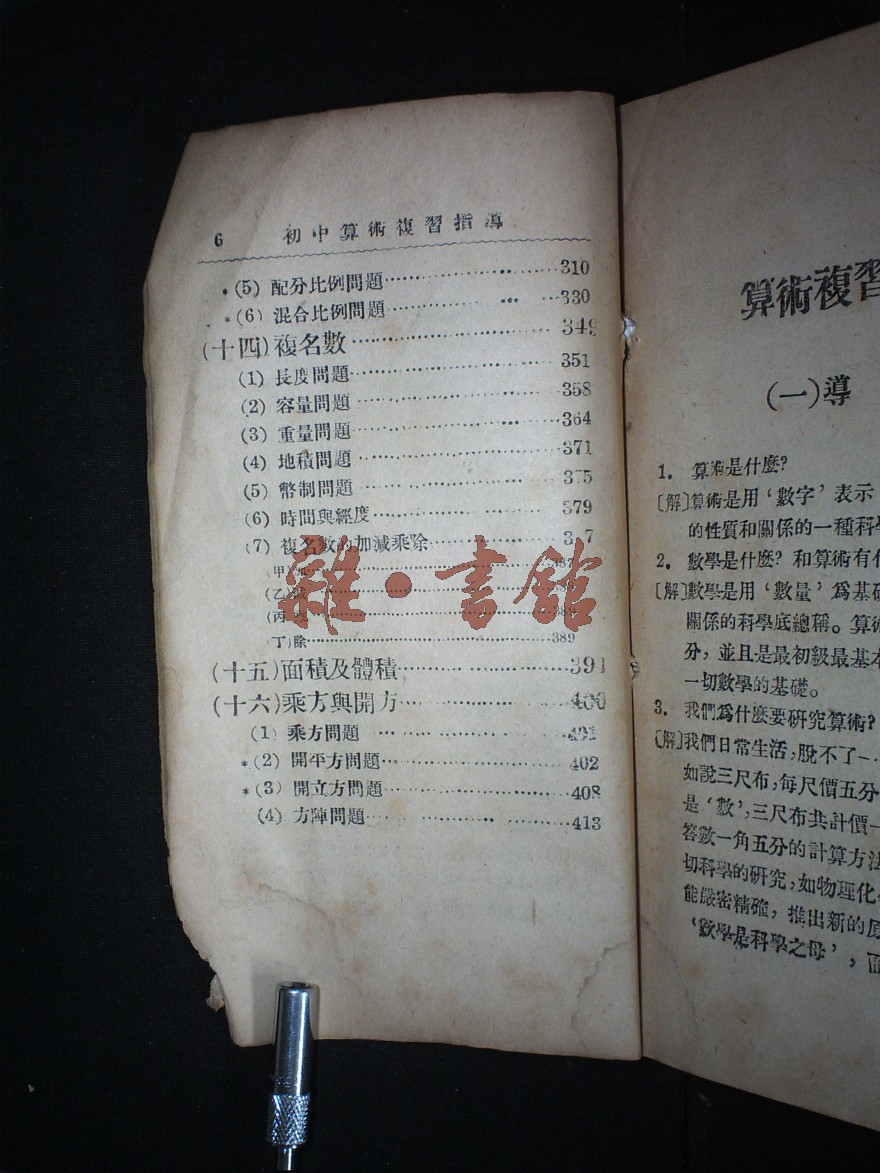 6 初中算術複習指導
*(5) 配分比例問題 310
*(6) 混合比例問題 330
(十四)複名數 349
(1) 長度問題 351
(2) 容量問題 358
(3) 重量問題 364
(4) 地積問題 371
(5) 幣制問題 375
(6) 時間與經度 379
(7) 複名數的加減乘除
387
(乙)
(丙)
丁)除 389
(十五)面積及體積 391
(十六)乘方與開方 400
(1) 乘方問題 401
*(2) 開平方問題 402
*(3) 開立方問題 408
(4) 方陣問題 413
雜·書館
算術複習
(一)導
1. 算術是什麼?
〔解〕算術是用‘數字’表示
的性質和關係的一種科學
2. 數學是什麼? 和算術有什
〔解〕數學是用‘數量’爲基礎
關係的科學底總稱。算術
分, 並且是最初級最基本
一切數學的基礎。
3. 我們爲什麼要研究算術?
〔解〕我們日常生活, 脫不了一
如說三尺布, 每尺價五分
是‘數’, 三尺布共計價一
答數一角五分的計算方法
切科學的研究, 如物理化
能嚴密精確, 推出新的原
‘數學是科學之母’,